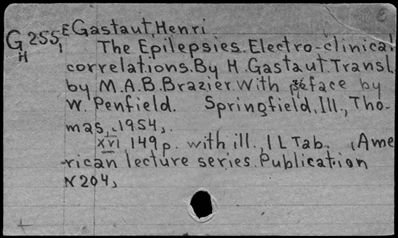 G 255, E Gastaut, Henri
H The Epilepsies. Electro-clinical
correlations. By H. Gastaut. Transl.
by M.A.B. Brazier. With preface by
W. Penfield. Springfield, Ill., Tho-
mas, 1954,.
xvi, 149 p. with ill., 1 L Tab. (Ame-
rican lecture series. Publication
N204,